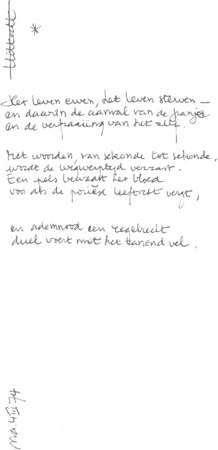 *
Het leven erven, het leven sterven —
en daarin de aanval van de franje
en de verfraaiing van het zelf.
Met woorden, van sekonde tot sekonde,
wordt de wegwerptijd verzart.
Een pols behaalt het bloed
voor als de poriën leeftocht vergt,
en ademnood een regelrecht
duel voert met het tanend vel.